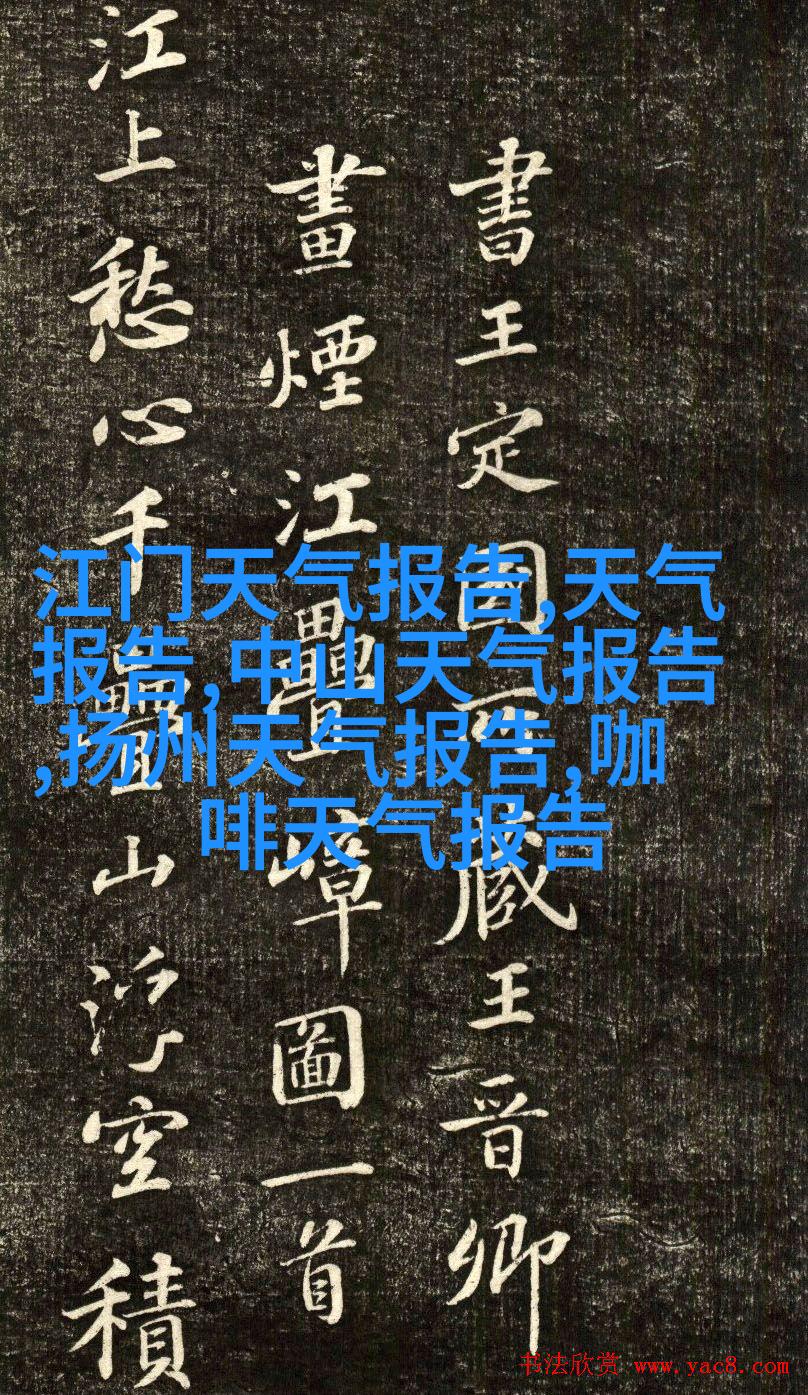 書王定國所藏王晉卿
畫煙江疊嶂圖一首
江上愁心千疊山浮空積
江门天气报告,天气
报告,中山天气报告
,扬州天气报告,咖
啡天气报告
书法欣赏 www.yac8.com